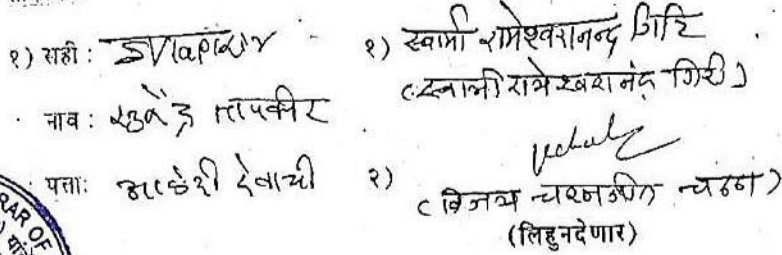 १) सही:
नाव: सुरेंद्र तापकीर
पत्ता: आळंदी देवाची
१) स्वामी रामेश्वरानन्द गिरि
(स्वामी रामेश्वरानंद गिरी)
२)
(विजय चरनजीत चंदन)
(लिहुनदेणार)
RAR OF